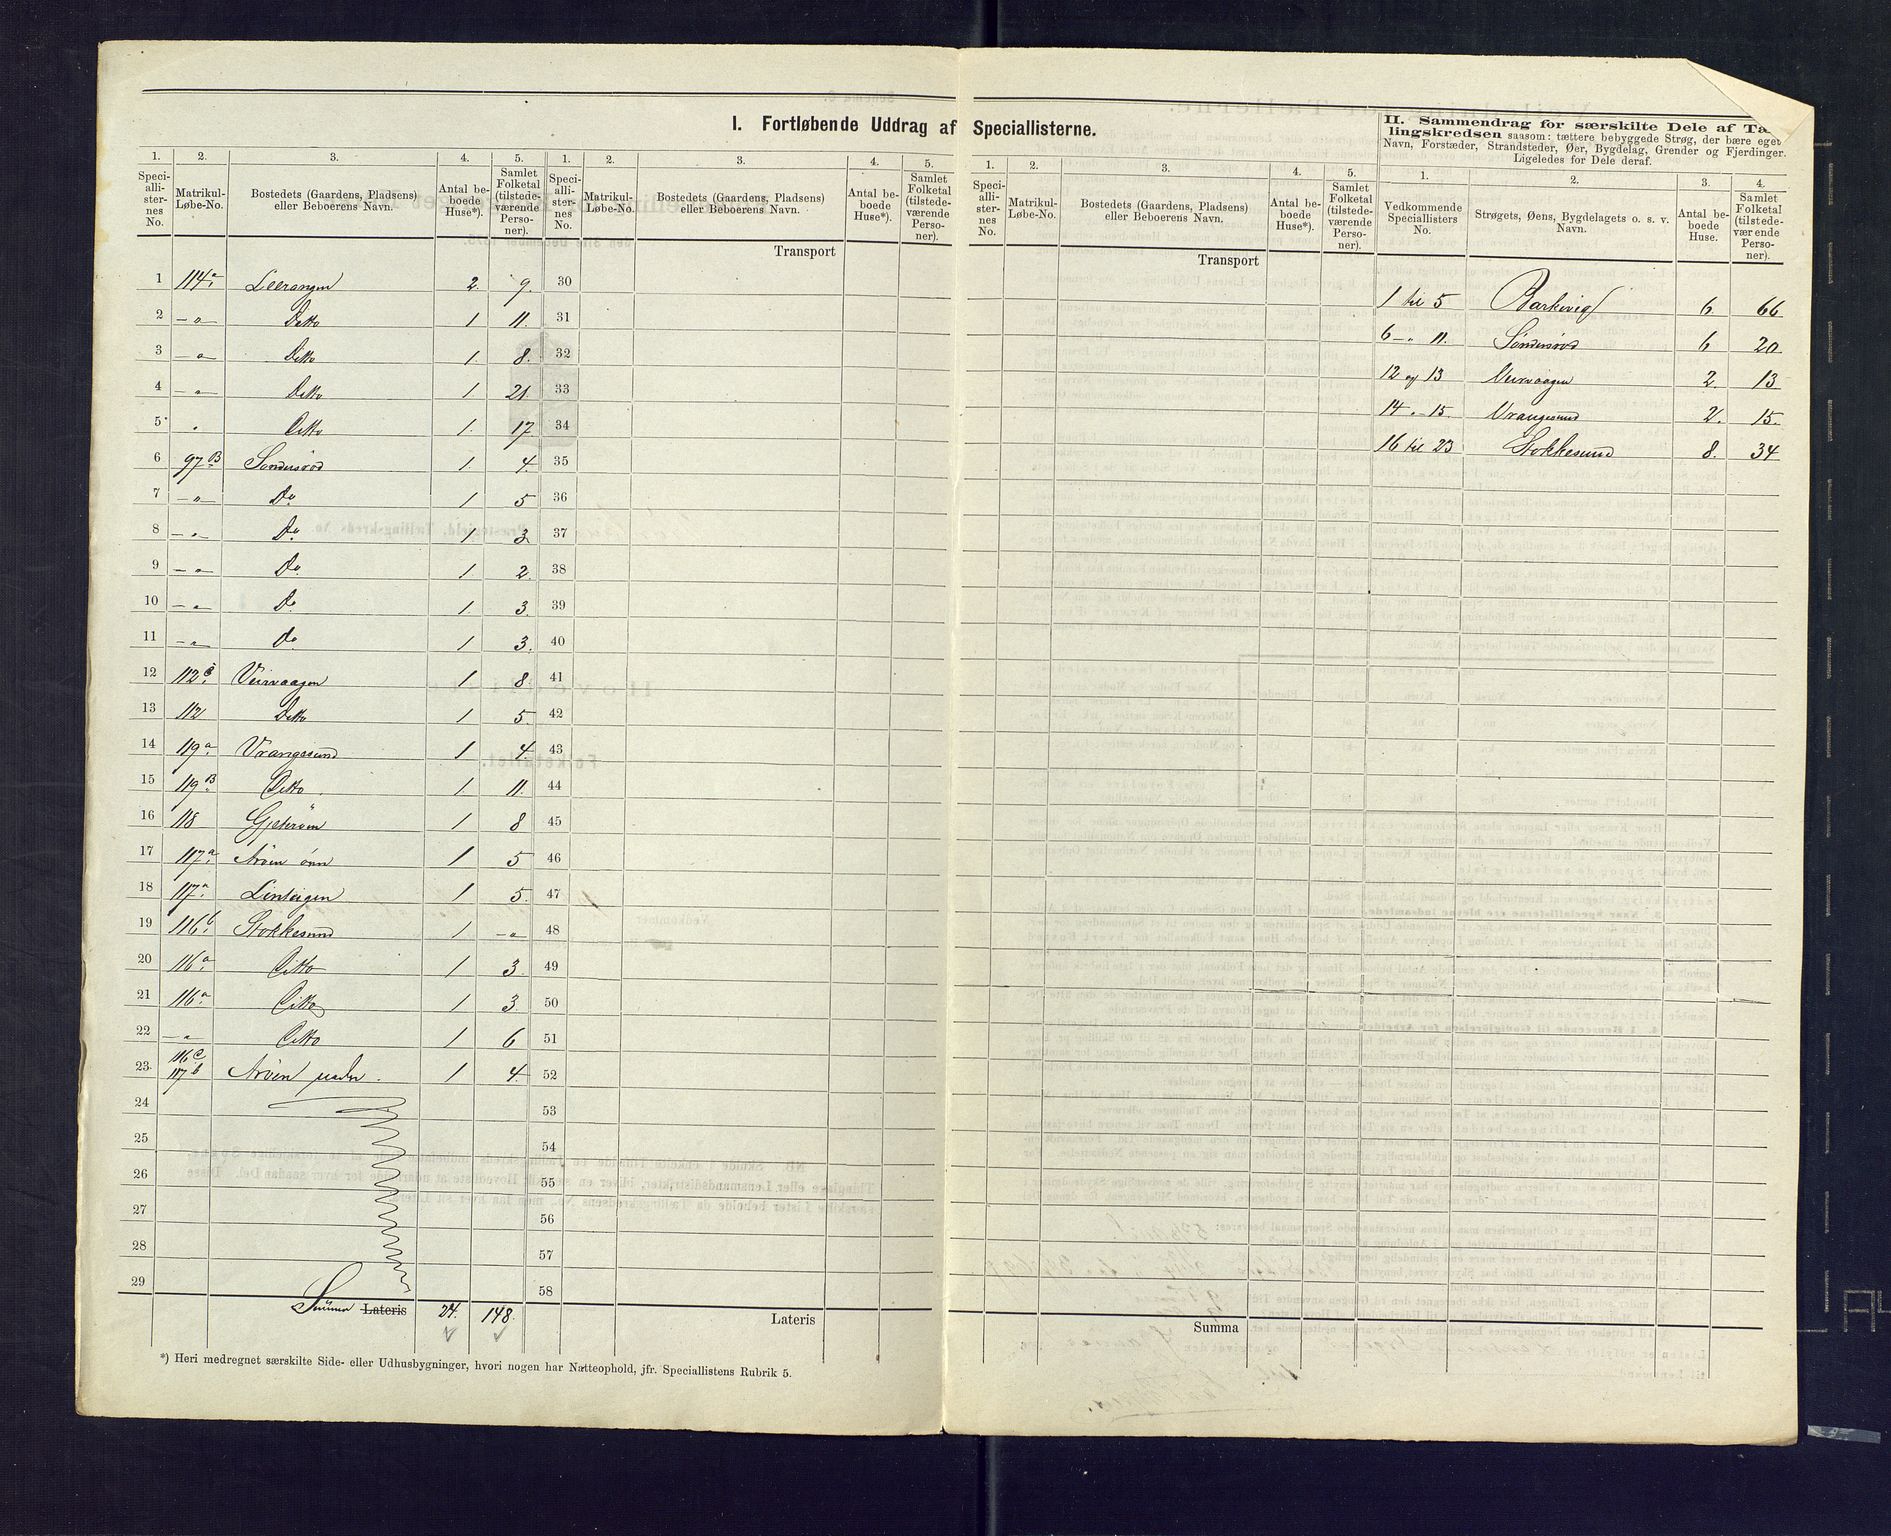 I. Fortløbende Uddrag af Speciallisterne.
II. Sammendrag for særskilte Dele af Tæ-
lingskredsen saasom: tættere bebyggede Strøg, der bære eget
Navn, Forstæder, Strandsteder, Øer, Bygdelag, Grender og Fjerdinger.
Ligeledes for Dele deraf.
1. 2. 3. 4. 5. 1. 2. 3. 4. 5. 1. 2. 3. 4. 5. 1. 2. 3. 4.
Speciallisternes No. Matrikul-Løbe-No. Bostedets (Gaardens, Pladsens) eller Beboerens Navn. Antal beboede Huse*). Samlet Folketal (tilstedeværende Personer).
Speciallisternes No. Matrikul-Løbe-No. Bostedets (Gaardens, Pladsens) eller Beboerens Navn. Antal beboede Huse*). Samlet Folketal (tilstedeværende Personer).
Speciallisternes No. Matrikul-Løbe-No. Bostedets (Gaardens, Pladsens) eller Beboerens Navn. Antal beboede Huse*). Samlet Folketal (tilstedeværende Personer).
Vedkommende Speciallisters No. Strøgets, Øens, Bygdelagets o. s. v. Navn. Antal beboede Huse. Samlet Folketal (tilstedeværende Personer).
Transport Transport
1 114a Leerangen 2. 9. 30
2 -"- Ditto 1 11. 31
3 -"- Ditto 1. 8. 32
4 -"- Ditto 1 21. 33
5 " Ditto 1. 17. 34
6 97B Søndersrød 1 4. 35
7 -"- Do 1 5 36
8 -"- Do 1. 3. 37
9 -"- Do 1 2. 38
10 -"- Do 1. 3. 39
11 -"- do 1 3. 40
12 112c Veirvaagen 1 8. 41
13 112 Ditto 1 5. 42
14 119a Vrangesund 1 4. 43
15 119B Ditto 1. 11. 44
16 118 1 8 45
17 117a Arøen 1 5 46
18 117a 1 5. 47
19 116b Stokkesund 1 -"- 48
20 116a Ditto 1 3. 49
21 116a Ditto 1 3. 50
22 -"- Ditto 1 6 51
23. 116c 117b Arøen 1 4. 52
24 53
25 54
26 55
27 56
28 57
29 58
Summa Lateris 24. 148. Lateris Summa
*) Heri medregnet særskilte Side- eller Udhusbygninger, hvori nogen har Natteophold, jfr. Speciallistens Rubrik 5.
1 til 5 Barkevig 6. 66
6 -"- 11. Søndersrød 6 20.
12 og 13 Veirvaagen 2. 13
14 -"- 15. Vrangesund 2. 15.
16 til 23 Stokkesund 8. 34